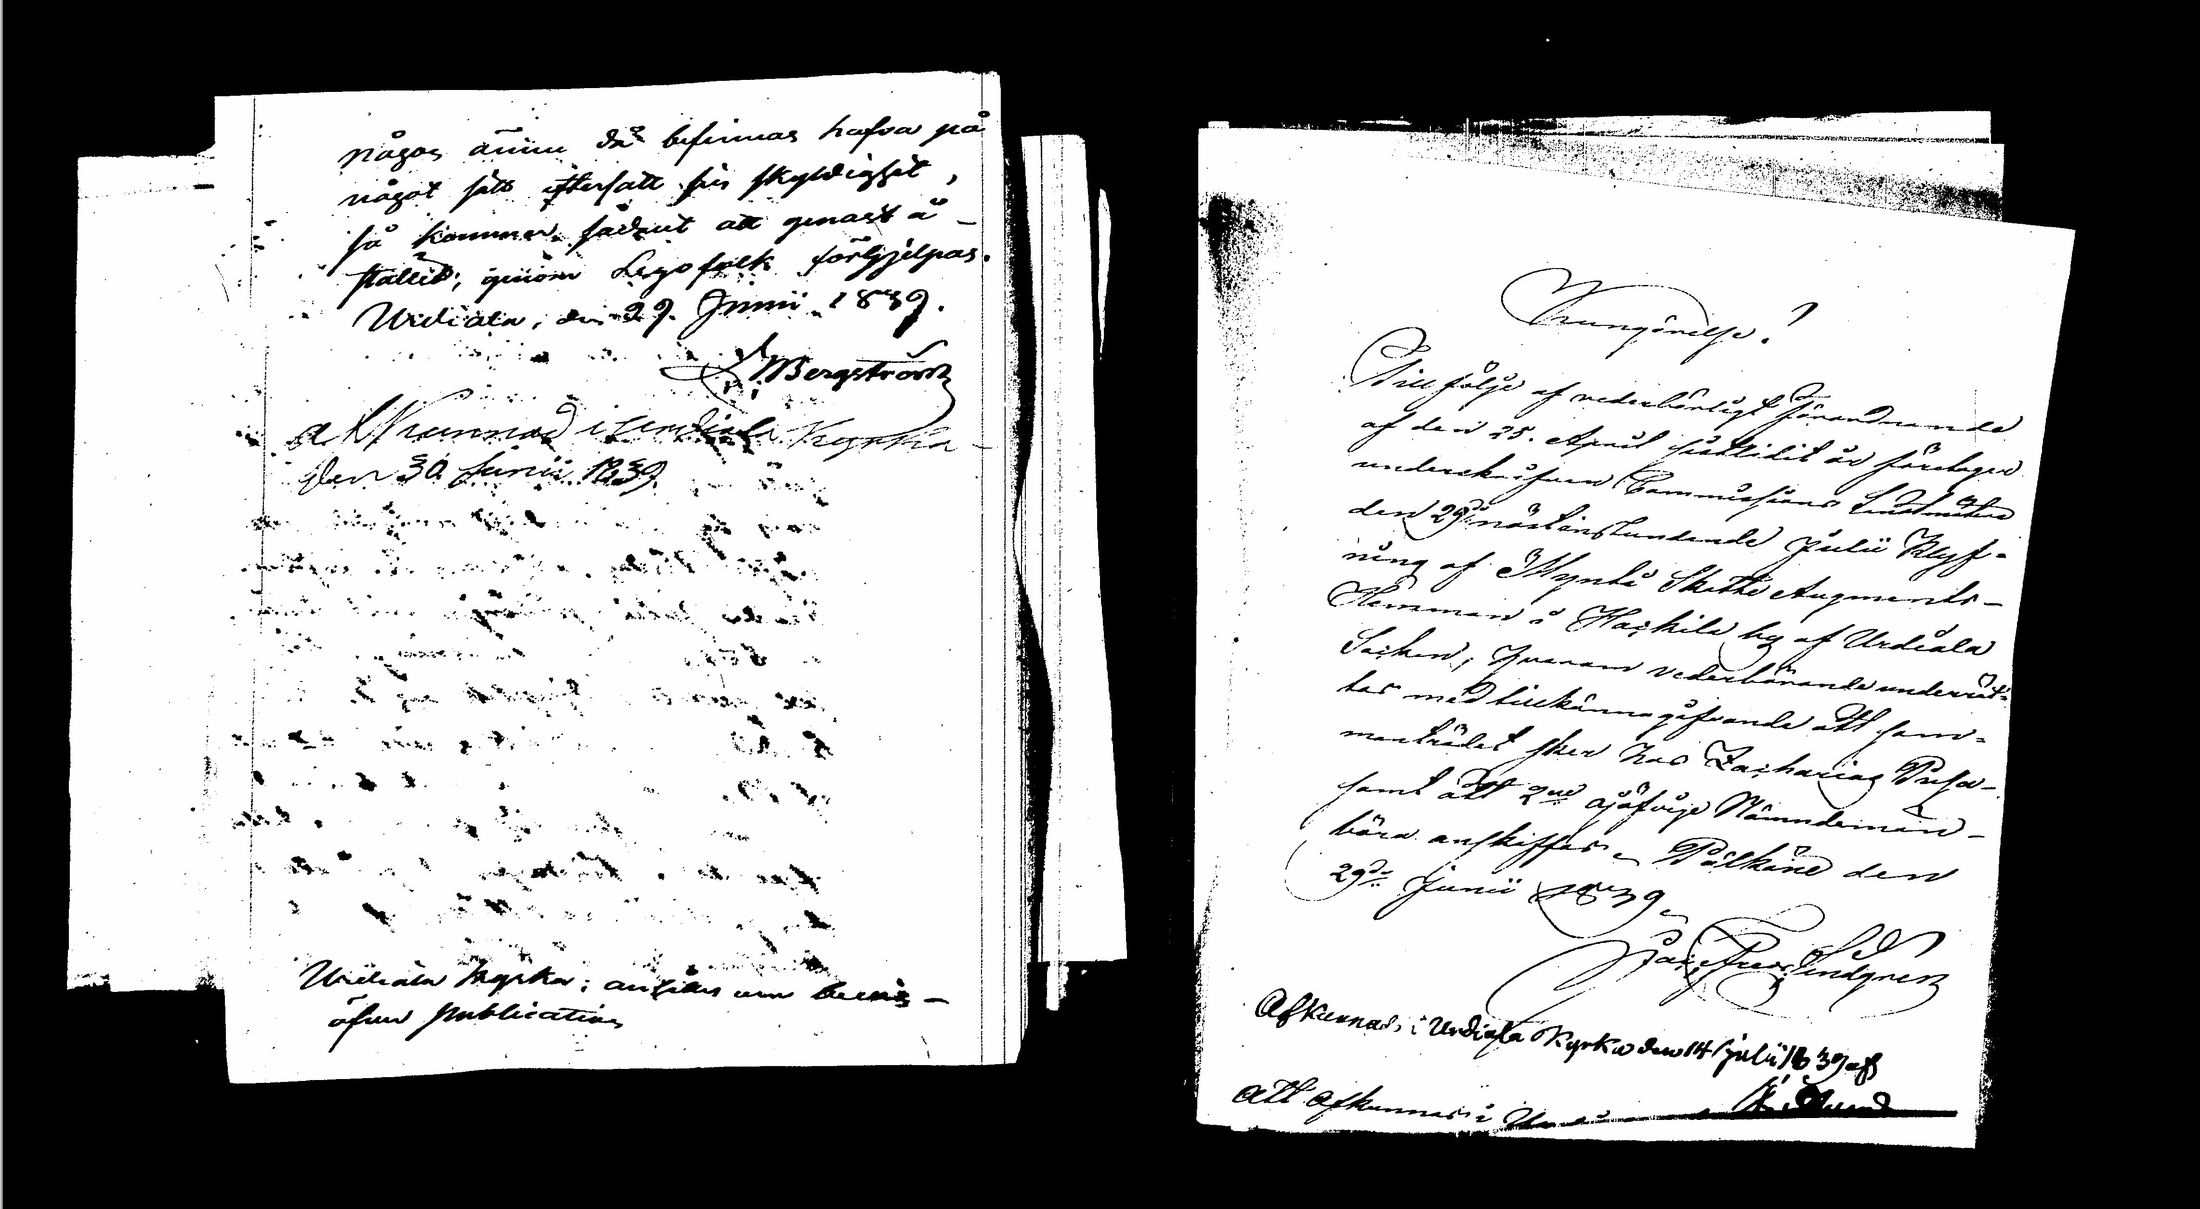 någon ännu då befinnas hafva på
något sätt eftersatt sin skyldighet,
så kommer sådant att genast å
stället, genom Legofolk förhjelpas.
Urdiala, den 29. Junii 1839.
Bergström
afkunnad i Urdiala Kyrka
den 30 Junii 1839.
Urdiala Kyrka; anhålles om bevis
öfver publication
Kungörelse!
Till följe af vederbörligt Förordnande
af den 25. April sistlidit år företager
underskrifven Commissions Landtmätare
den 29de nästinstundande Julii Klyf-
ning af Skatte Augments-
Hemman i Hackila by af Urdiala
Socken; hvarom vederbörande underrät-
tas med tillkännagifvande att sam-
manträdet sker hos Zacharias
samt att 2ne ojäfvige Nämndemän
böra anskaffas. Pälkäne den
29de Junii 1839.
Lindgren
Afkunnad i Urdiala Kyrka den 14 Julii 1839 af
att afkunnas i